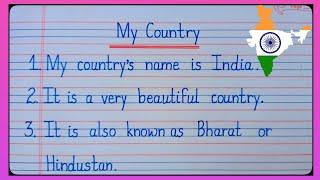 My Country
1. My country's name is India.
2. It is a very beautiful country.
3. It is also known as Bharat or
Hindustan.